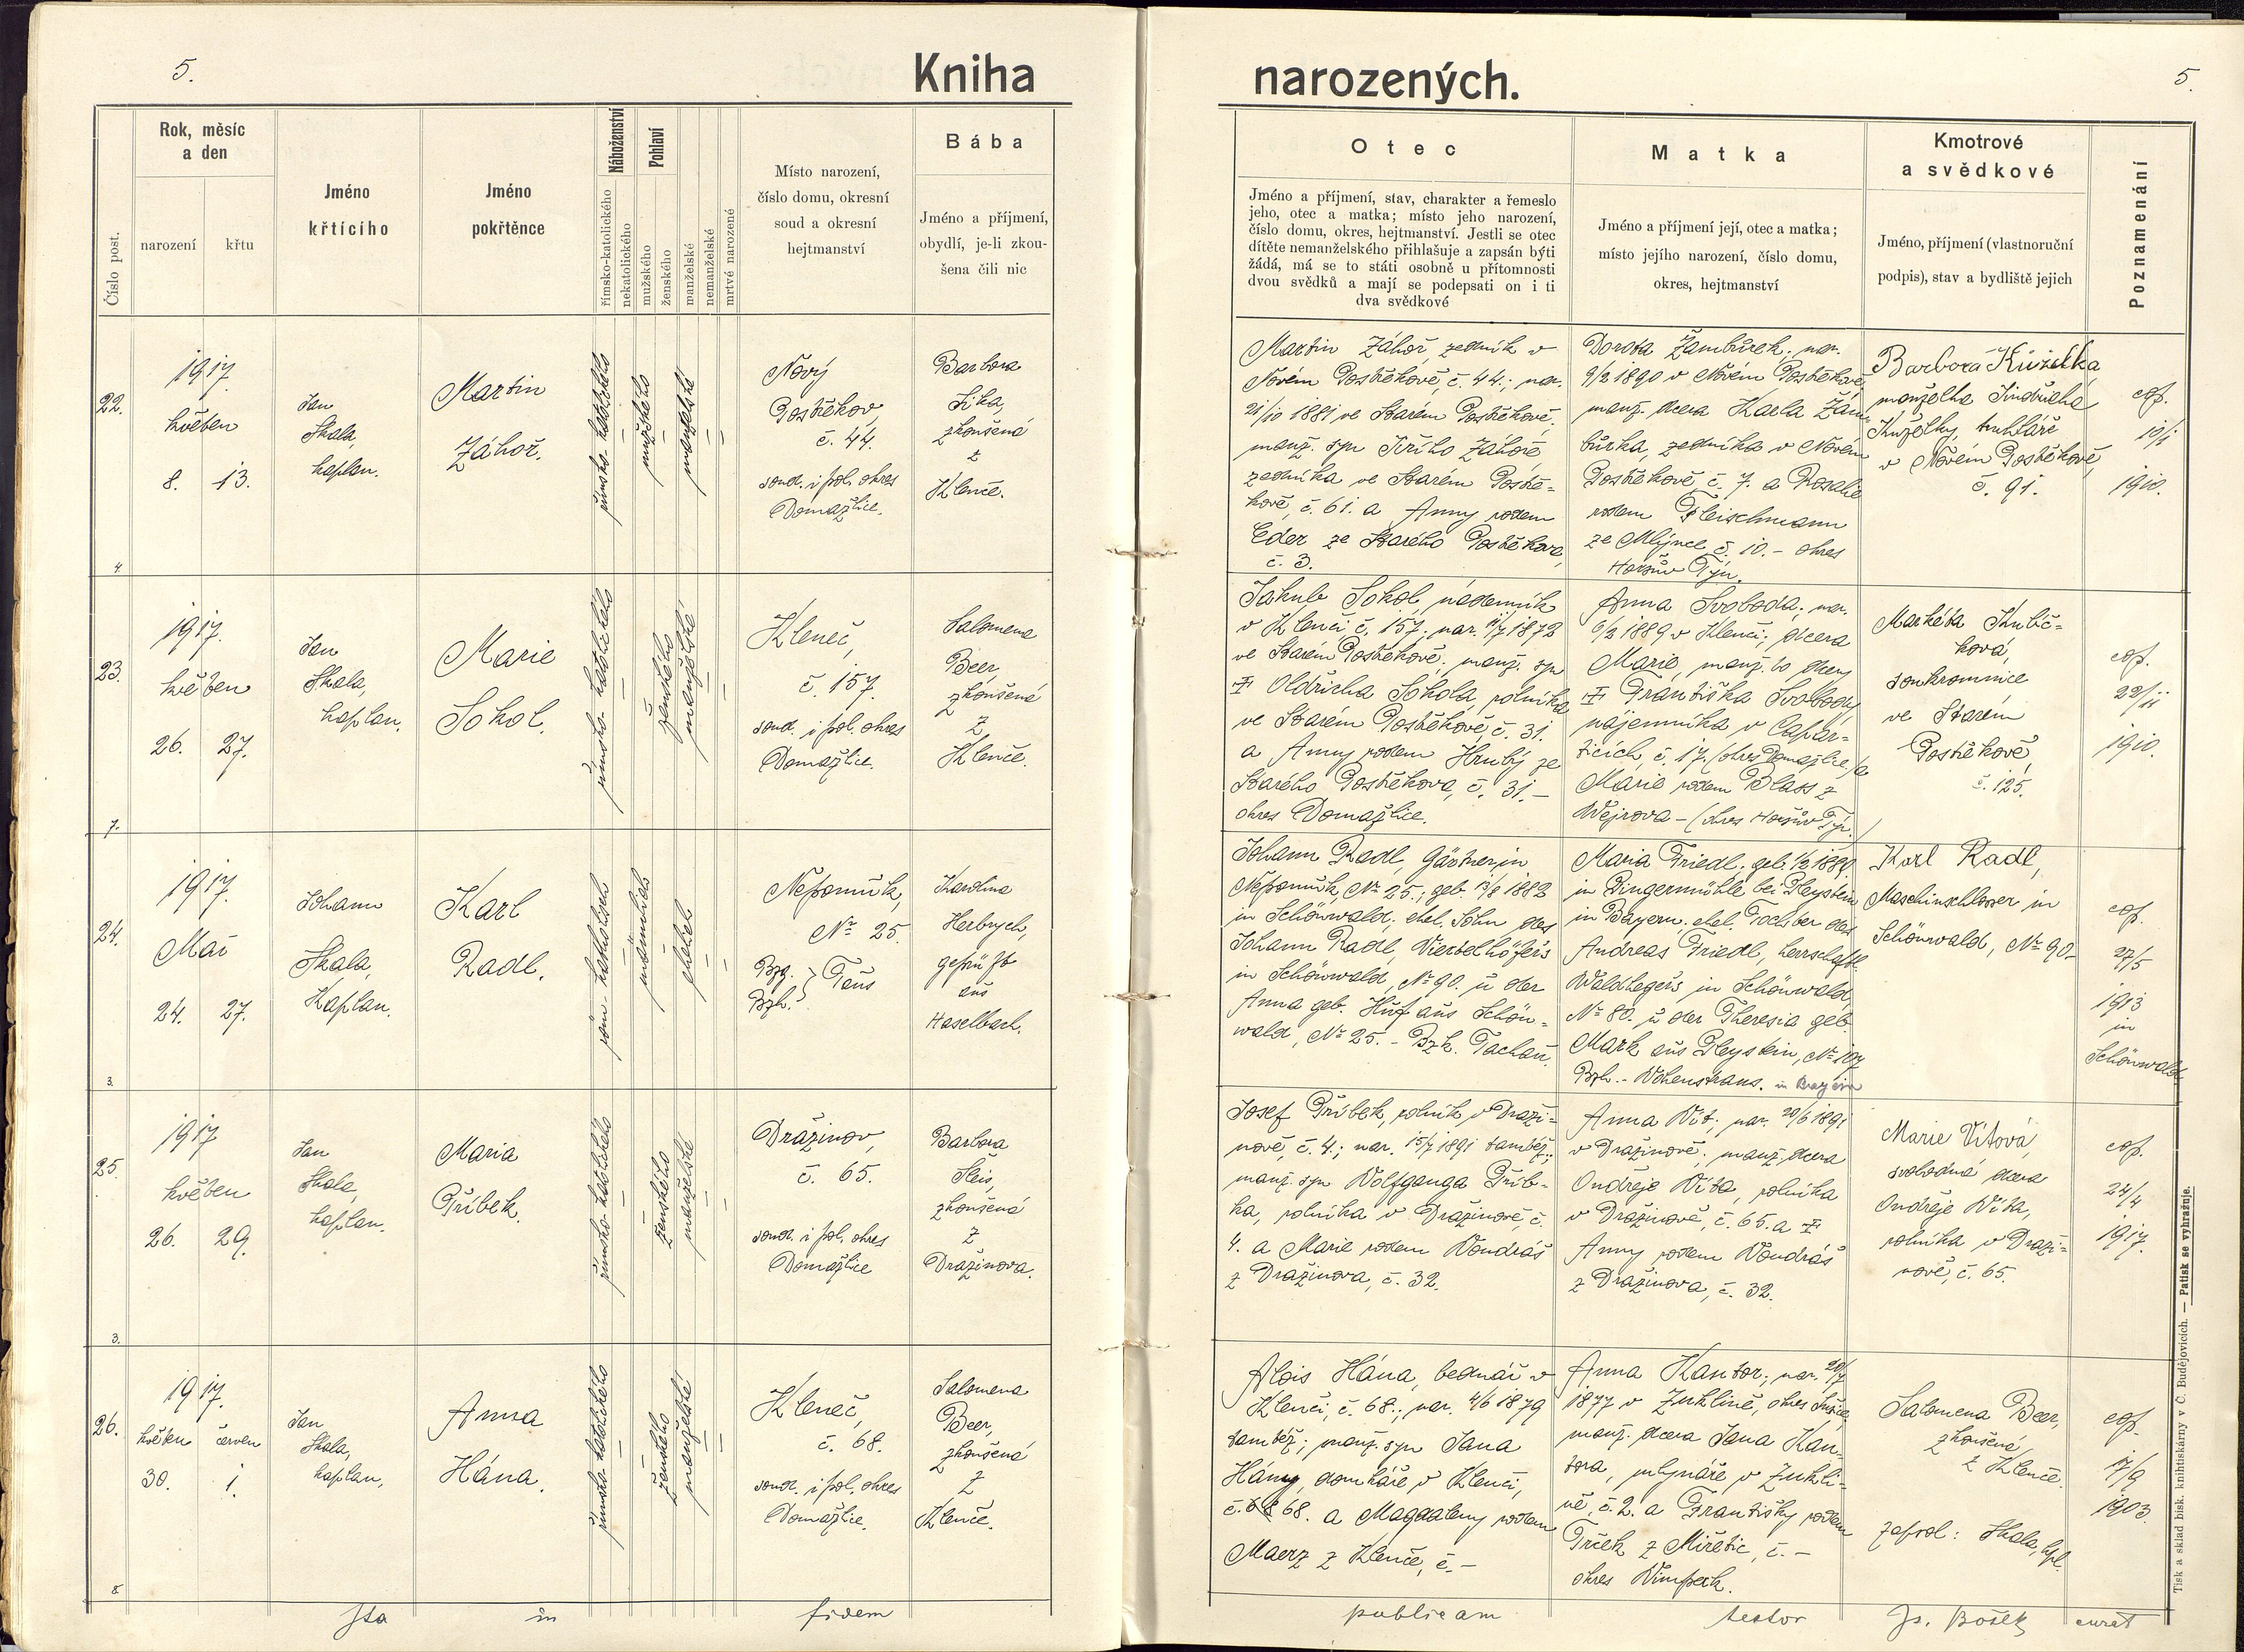 5.
Kniha
narozených.
5.
Číslo post.
Rok, měsíc
a den
narození
křtu
Jméno
křtícího
Jméno
pokřtěnce
Náboženství
římsko-katolického
nekatolického
Pohlaví
mužského
ženského
manželské
nemanželské
mrtvě narozené
Místo narození,
číslo domu, okresní
soud a okresní
hejtmanství
Bába
Jméno a příjmení,
obydlí, je-li zkou-
šena čili nic
Otec
Jméno a příjmení, stav, charakter a řemeslo
jeho, otec a matka; místo jeho narození,
číslo domu, okres, hejtmanství. Jestli se otec
dítěte nemanželského přihlašuje a zapsán býti
žádá, má se to státi osobně u přítomnosti
dvou svědků a mají se podepsati on i ti
dva svědkové
Matka
Jméno a příjmení její, otec a matka;
místo jejího narození, číslo domu,
okres, hejtmanství
Kmotrové
a svědkové
Jméno, příjmení (vlastnoruční
podpis), stav a bydliště jejich
Poznamenání
22.
1917.
květen
8. 13.
Jan
Skala,
kaplan.
Martin
Záhoř.
římsko-katolického
mužského
manželské
Nový
Postřekov
č. 44.
soud. i pol. okres
Domažlice.
Barbora
Sika,
zkoušená
z
Klenče.
Martin Záhoř, zedník v
Novém Postřekově, č. 44.; nar.
21/10 1881 ve Starém Postřekově,
manž. syn Jiřího Záhoře
zedníka ve Starém Postře-
kově, č. 61. a Anny rodem
Eder ze Starého Postřekova,
č. 3.
Dorota Žambůrek; nar.
9/2 1890 v Novém Postřekově,
manž. dcera Karla Žam-
bůrka, zedníka v Novém
Postřekově č. 7. a Rosalie
rodem Fleischmann
ze Mlýnce č. 10. - okres
Horšův Týn.
Barbora Kuželka
manželka Jindřicha
Kuželky, truhláře
v Novém Postřekově,
č. 91.
cop.
10/1
1910.
4.
23.
1917.
květen
26. 27.
Jan
Skala,
kaplan.
Marie
Sokol.
římsko-katolického
ženského
manželské
Kleneč,
č. 157.
soud. i pol. okres
Domažlice.
Salomena
Beer,
zkoušená
z
Klenče.
Jakub Sokol, nádenník
v Klenči č. 157; nar. 11/7 1872
ve Starém Postřekově; manž. syn
Oldřicha Sokola, rolníka
ve Starém Postřekově, č. 31.
a Anny rodem Hrubý ze
Starého Postřekova, č. 31. -
okres Domažlice.
Anna Svoboda; nar.
6/2 1889 v Klenči; dcera
Marie, manž. to dcery
Františka Svobody,
nájemníka v Capar-
ticích, č. 17. (okres Domažlice) a
Marie rodem Blass z
Wejrova - (okres Horšův Týn.)
Markéta Kubič-
ková,
soukromnice
ve Starém
Postřekově,
č. 125.
cop.
22/11
1910.
7.
24.
1917.
Mai
24. 27.
Johann
Skala,
Kaplan.
Karl
Radl.
röm-katholisch
männlich
ehelich
Nepomuk,
No 25.
Bzg.
Bzh. } Taus
Karolina
Herbrych,
geprüft
aus
Haselbach.
Johann Radl, Gärtner in
Nepomuk, No 25.; geb. 13/8 1882
in Schönwald; ehel. Sohn des
Johann Radl, Viertelhöfers
in Schönwald, No 90. u der
Anna geb. Huf aus Schön-
wald, No 25. - Bzh. Tachau.
Maria Friedl; geb. 1/2 1889.
in Pingermühle bei Pleystein
in Bayern; ehel. Tochter des
Andreas Friedl, herrschaftl.
Waldhegers in Schönwald
No 80. u der Theresia geb.
Mark aus Pleystein, No 107
Bzh. - Vohenstraus. in Bayern
Karl Radl,
Maschinschlosser in
Schönwald, No 90.
cop.
27/5
1913
in
Schönwald
3.
25.
1917
květen
26. 29.
Jan
Skala,
kaplan.
Maria
Příbek.
římsko-katolického
ženského
manželské
Dražinov,
č. 65.
soud. i pol. okres
Domažlice
Barbora
Šleis,
zkoušená
z
Dražinova.
Josef Příbek, rolník v Draži-
nově, č. 4.; nar. 15/7 1891 tamtéž;
manž. syn Wolfganga Příb-
ka, rolníka v Dražinově, č.
4. a Marie rodem Vondráš
z Dražinova, č. 32.
Anna Vít; nar. 20/6 1891
v Dražinově; manž. dcera
Ondřeje Víta, rolníka
v Dražinově, č. 65. a
Anny rodem Vondráš
z Dražinova, č. 32.
Marie Vítová,
svobodná dcera
Ondřeje Víta,
rolníka v Draži-
nově, č. 65.
cop.
24/4
1917.
3.
26.
1917.
květen červen
30. 1.
Jan
Skala,
kaplan,
Anna
Hána.
římsko-katolického
ženského
manželské
Kleneč,
č. 68.
soud. i pol. okres
Domažlice.
Salomena
Beer,
zkoušená
z
Klenče.
Alois Hána, bednář v
Klenči, č. 68.; nar. 4/6 1879
tamtéž; manž. syn Jana
Hány, domkáře v Klenči,
č. 68. a Magdaleny rodem
Maerz z Klenče, č. -
Anna Kantor; nar. 20/7
1877 v Zuklíně, okres Sušice,
manž. dcera Jana Kan-
tora, mlynáře v Zuklí-
ně, č. 2. a Františky rodem
Trček z Miřetic, č. -
okres Vimperk.
Salomena Beer,
zkoušená
z Klenče.
zapsal: Skala, kpl.
cop.
17/9
1903.
8.
Ita in fidem publicam testor Js. Bošek curat
Tisk a sklad bisk. knihtiskárny v Č. Budějovicích. — Patisk se vyhražuje.